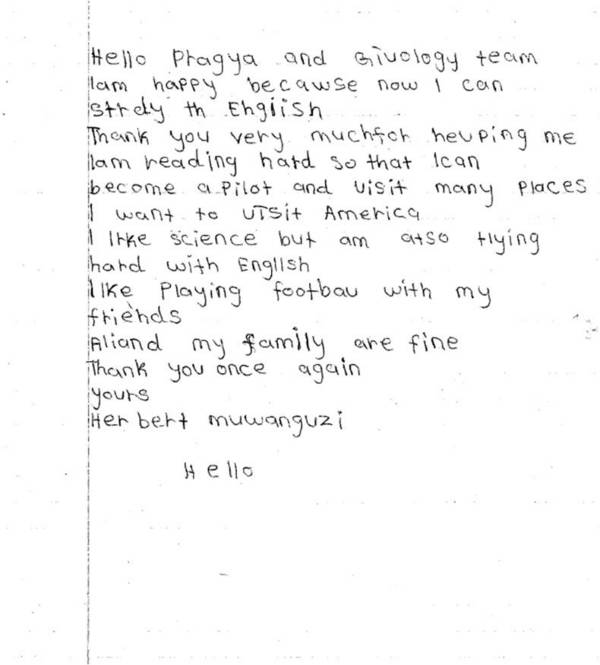 Hello Pragya and Givology team
Iam happy because now I can
strdy th English
Thank you very muchfor heuping me
Iam reading hard so that Ican
become a Pilot and visit many places
I want to uisit America
I like science but am atso trying
hard with English
like Playing footbau with my
friends
Aliand my family are fine
Thank you once again
yours
Her bert muwanguzi
Hello